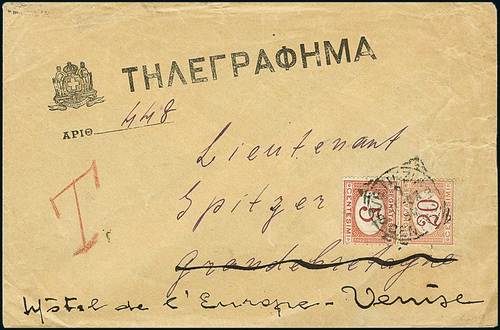 ΤΗΛΕΓΡΑΦΗΜΑ
ΑΡΙΘ. 448
Lieutenant
T
Spitzer
Grandebretagne
Hôtel de l'Europe - Venise
5
CENTESIMI
20
CENTESIMI